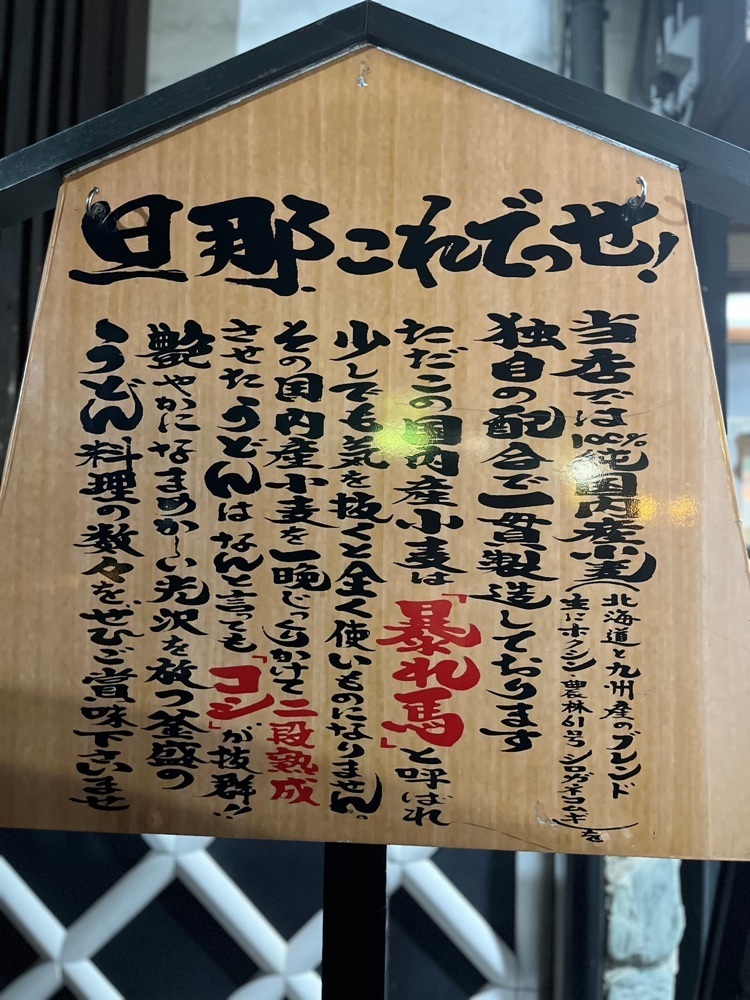 旦那これでっせ!
当店では100%純国内産小麦(北海道と九州産のブレンド
主にホクシン・農林61号シロガネコムギ)を
独自の配合で一貫製造しております
ただこの国内産小麦は「暴れ馬」と呼ばれ
少しでも気を抜くと全く使いものになりません。
その国内産小麦を一晩じっくりかけて二段熟成
させたうどんはなんと言っても「コシ」が抜群!!
艶やかになまめかしい光沢を放つ釜盛の
うどん料理の数々をぜひご賞味下さいませ